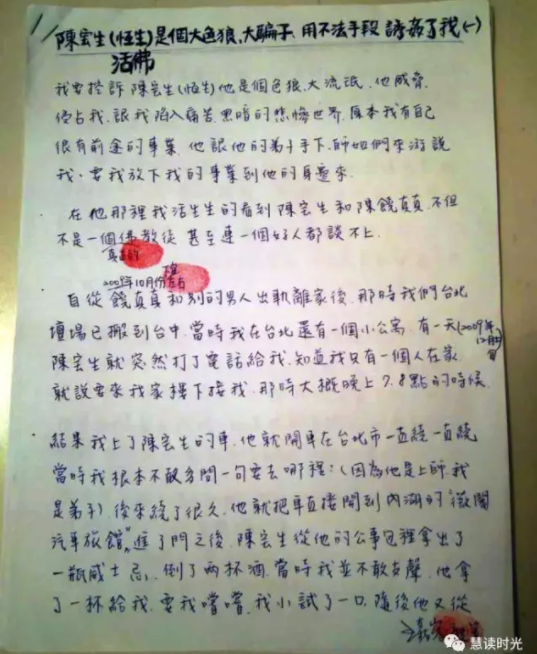 陳宏生(恆生)是個大色狼,大騙子,用不法手段誘姦了我(一)
活佛
我要控訴 陳宏生(恆生)他是個色狼,大流氓,他威脅,
侵占我,讓我陷入痛苦黑暗的悲慘世界,原本我有自己
很有前途的事業 他讓他的弟子手下,師姐們來游說
我,要我放下我的事業到他的身邊來.
在他那裡我活生生的看到陳宏生和陳饒真真,不但
不是一個佛教徒 甚至連一個好人都談不上.
真正的
2009年10月份左右
自從 饒真真和別的男人出軌離家後,那時我們台北
壇場已搬到台中,當時我在台北還有一個小公寓,有一天(2009年12月
陳宏生就突然打了電話給我,知道我只有一個人在家
就說要來我家樓下接我,那時大概晚上7.8點的時候.
結果我上了陳宏生的車,他就開車在台北市一直繞一直繞
當時我根本不敢多問一句要去哪裡:(因為他是上師,我
是弟子),後來繞了很久,他就把車直接開到內湖的"薇閣
汽車旅館",進了門之後,陳宏生從他的公事包裡拿出了
一瓶威士忌,倒了兩杯酒,當時我並不敢支聲,他拿
了一杯給我,要我嚐嚐,我小試了一口,隨後他又從
慧读时光